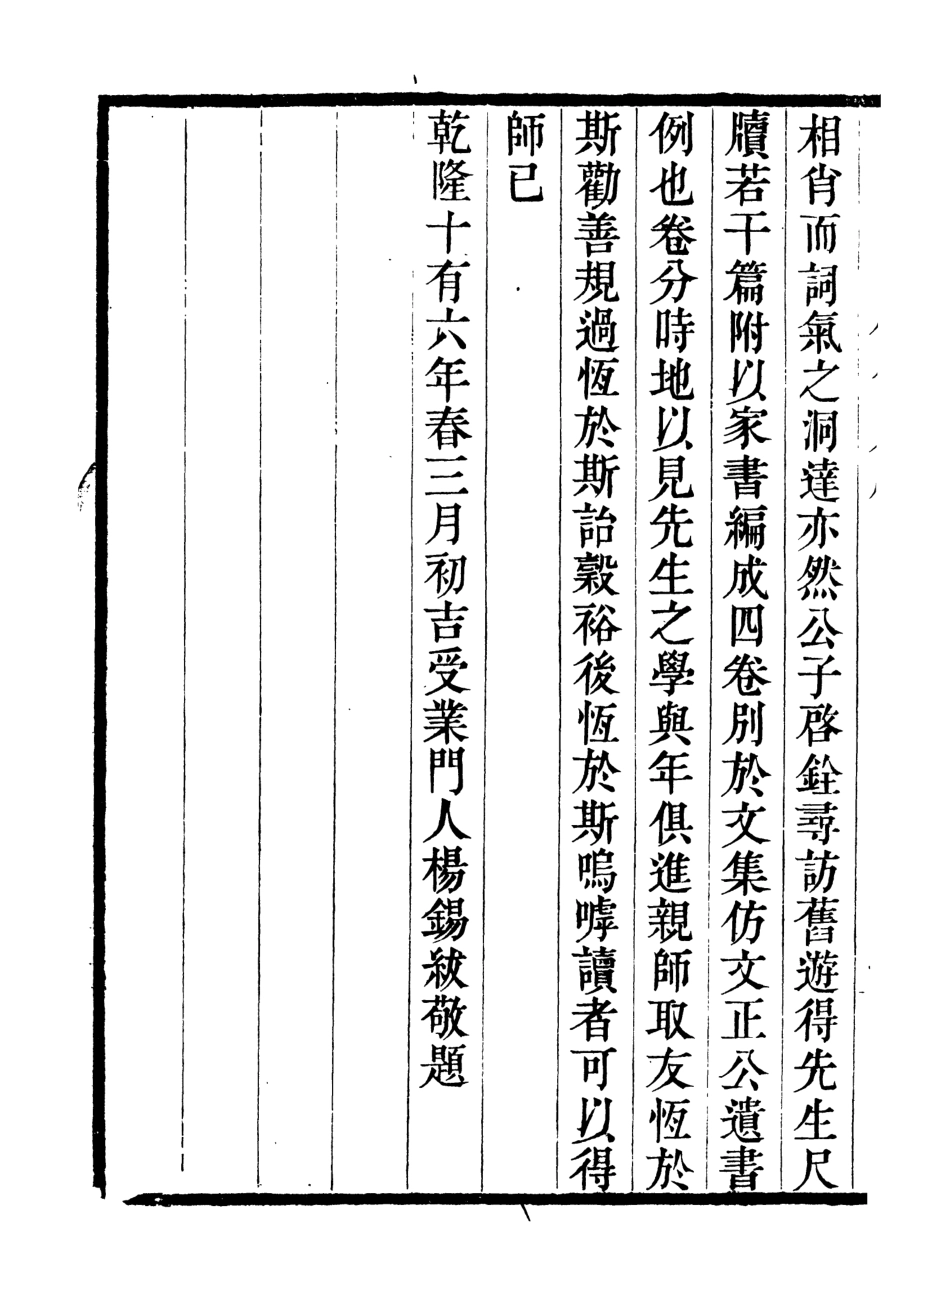 相肖而詞氣之洞達亦然公子啓銓尋訪舊遊得先生尺
牘若干篇附以家書編成四卷別於文集仿文正公遺書
例也卷分時地以見先生之學與年俱進親師取友恆於
斯勸善規過恆於斯詒穀裕後恆於斯嗚嘑讀者可以得
師已
乾隆十有六年春三月初吉受業門人楊錫紱敬題